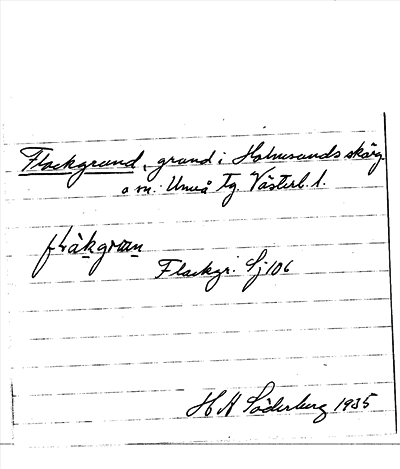 Flackgrund, grund i Holmsunds skärg.
o m. Umeå tg. Västerb. l.
Flackgr. Sj 106
H A Söderberg 1935